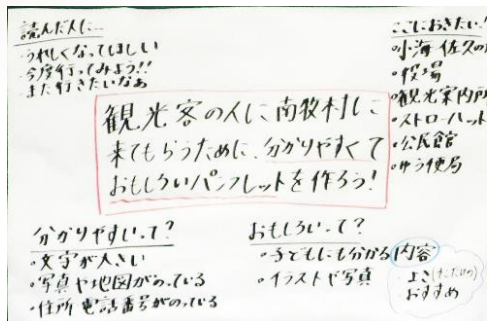 読んだ人に…
・うれしくなってほしい
・今度行ってみよう!!
・また行きたいなあ
ここにおきたい!
・小海・佐久の
・役場
・観光案内所
・ストローハット
・公民館
・ゆう便局
観光客の人に南牧村に
来てもらうために、分かりやすくて
おもしろいパンフレットを作ろう!
分かりやすいって?
・文字が大きい
・写真や地図がのっている
・住所 電話番号がのっている
おもしろいって?
・子どもにも分かる内容
・イラストや写真
・よさ(ここだけの)
おすすめ